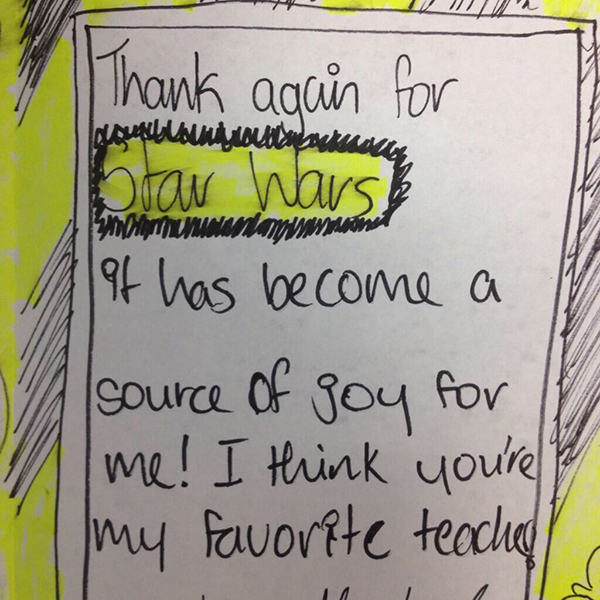 Thank again for
Star Wars
It has become a
source of joy for
me! I think you're
my favorite teacher